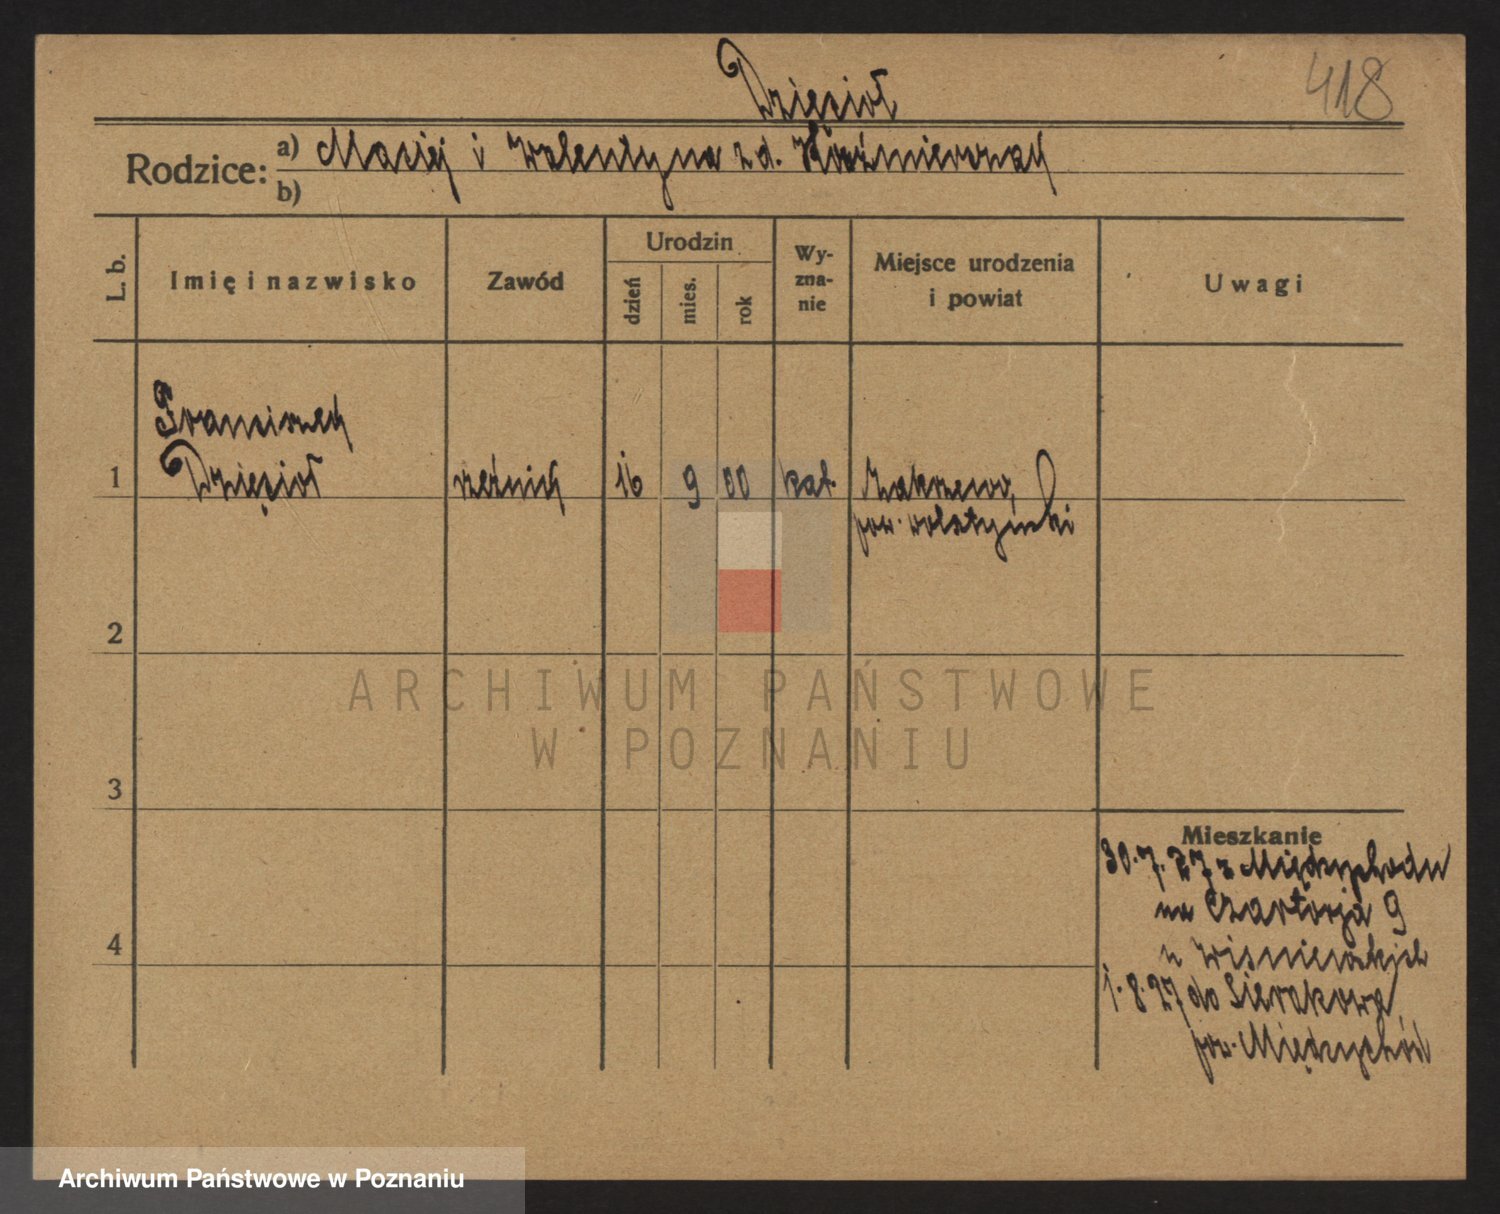 Dzięcioł
418
Rodzice: a) Maciej i Walentyna z d. Kaźmierczak
b)
L. b.
Imię i nazwisko
Zawód
Urodzin
dzień
mies.
rok
Wy-
zna-
nie
Miejsce urodzenia
i powiat
Uwagi
Franciszek
1 Dzięcioł rzeźnik 16 9 00 kat. Zakrzewo,
pow. wolsztyński
2
3
4
Mieszkanie
30.7.27 z Międzychodu
na Czartorja 9
u Wiśniewskich
1.8.27 do Sierakowa,
pow. Międzychód
ARCHIWUM PAŃSTWOWE
W POZNANIU
Archiwum Państwowe w Poznaniu